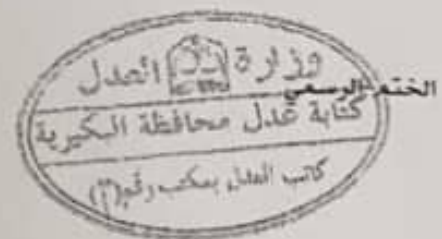 وزارة العدل
الختم الرسمي
كتابة عدل محافظة البكيرية
كاتب العدل بمكتب رقم